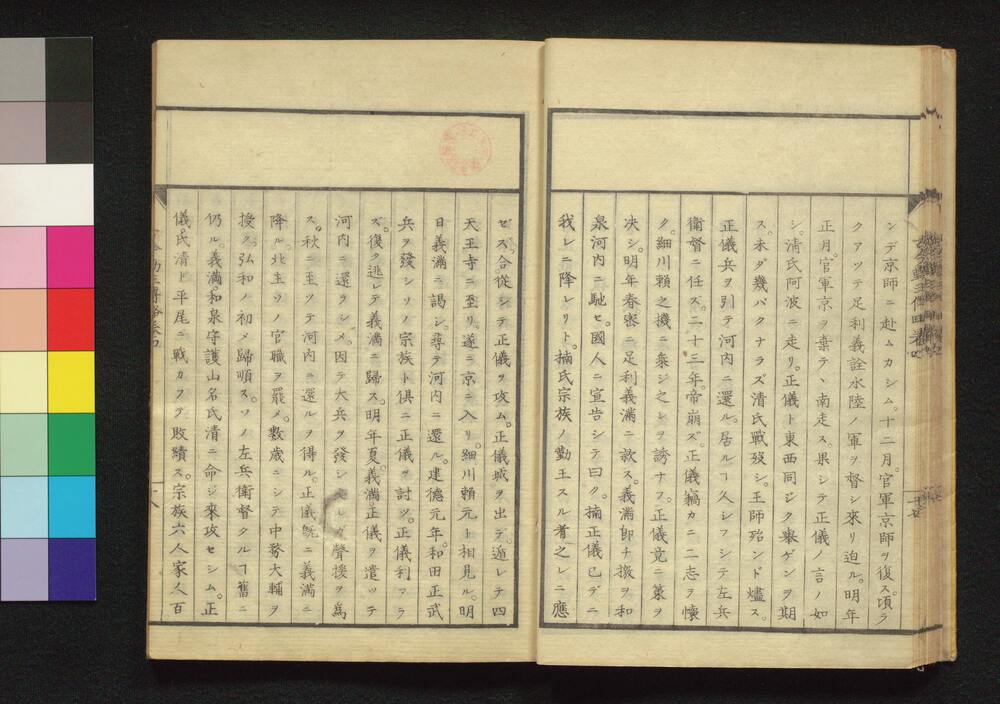 ンデ京師ニ赴ムカシム。十二月。官軍京師ヲ復ス。頃ラ
クアツテ足利義詮水陸ノ軍ヲ督シ來リ迫ル。明年
正月。官軍京ヲ棄テ、南走ス。果シテ正儀ノ言ノ如
シ。清氏阿波ニ走リ。正儀ト東西同ジク擧ゲンヲ期
ス。未ダ幾バクナラズ清氏戰歿シ。王師殆ンド燼ス。
正儀兵ヲ引テ河内ニ還ル。居ルヿ久シフシテ左兵
衛督ニ任ズ。二十三年。帝崩ズ。正儀竊カニ二志ヲ懷
ク。細川賴之機ニ乘ジ之レヲ誘ナフ。正儀竟ニ策ヲ
决シ。明年春密ニ足利義滿ニ款ス。義滿卽チ檄ヲ和
泉河内ニ馳セ。國人ニ宣告シテ曰ク。楠正儀已デニ
我レニ降レリト。楠氏宗族ノ勤王スル者之レニ應
ゼズ。合從シテ正儀ヲ攻ム。正儀城ヲ出デ。遁レテ四
天王寺ニ至リ。遂ニ京ニ入リ。細川賴元ト相見ル。明
日義滿ニ謁シ。尋テ河内ニ還ル。建德元年。和田正武
兵ヲ發シソノ宗族ト俱ニ正儀ヲ討ツ。正儀利アラ
ズ。復タ逃レテ義滿ニ歸ス。明年夏。義滿正儀ヲ遣ッテ
河内ニ還ラシメ。因テ大兵ヲ發シ之レガ聲援ヲ爲
ス。秋ニ至ツテ河内ニ還ルヲ得ル。正儀旣ニ義滿ニ
降ル。北主ソノ官職ヲ罷メ。數歳ニシテ中務大輔ヲ
授ク。弘和ノ初メ歸順ス。ソノ左兵衛督タルヿ舊ニ
仍ル。義滿和泉守護山名氏清ニ命ジ來攻セシム。正
儀氏清ト平尾ニ戰カフテ敗績ス。宗族六人家ノ人百